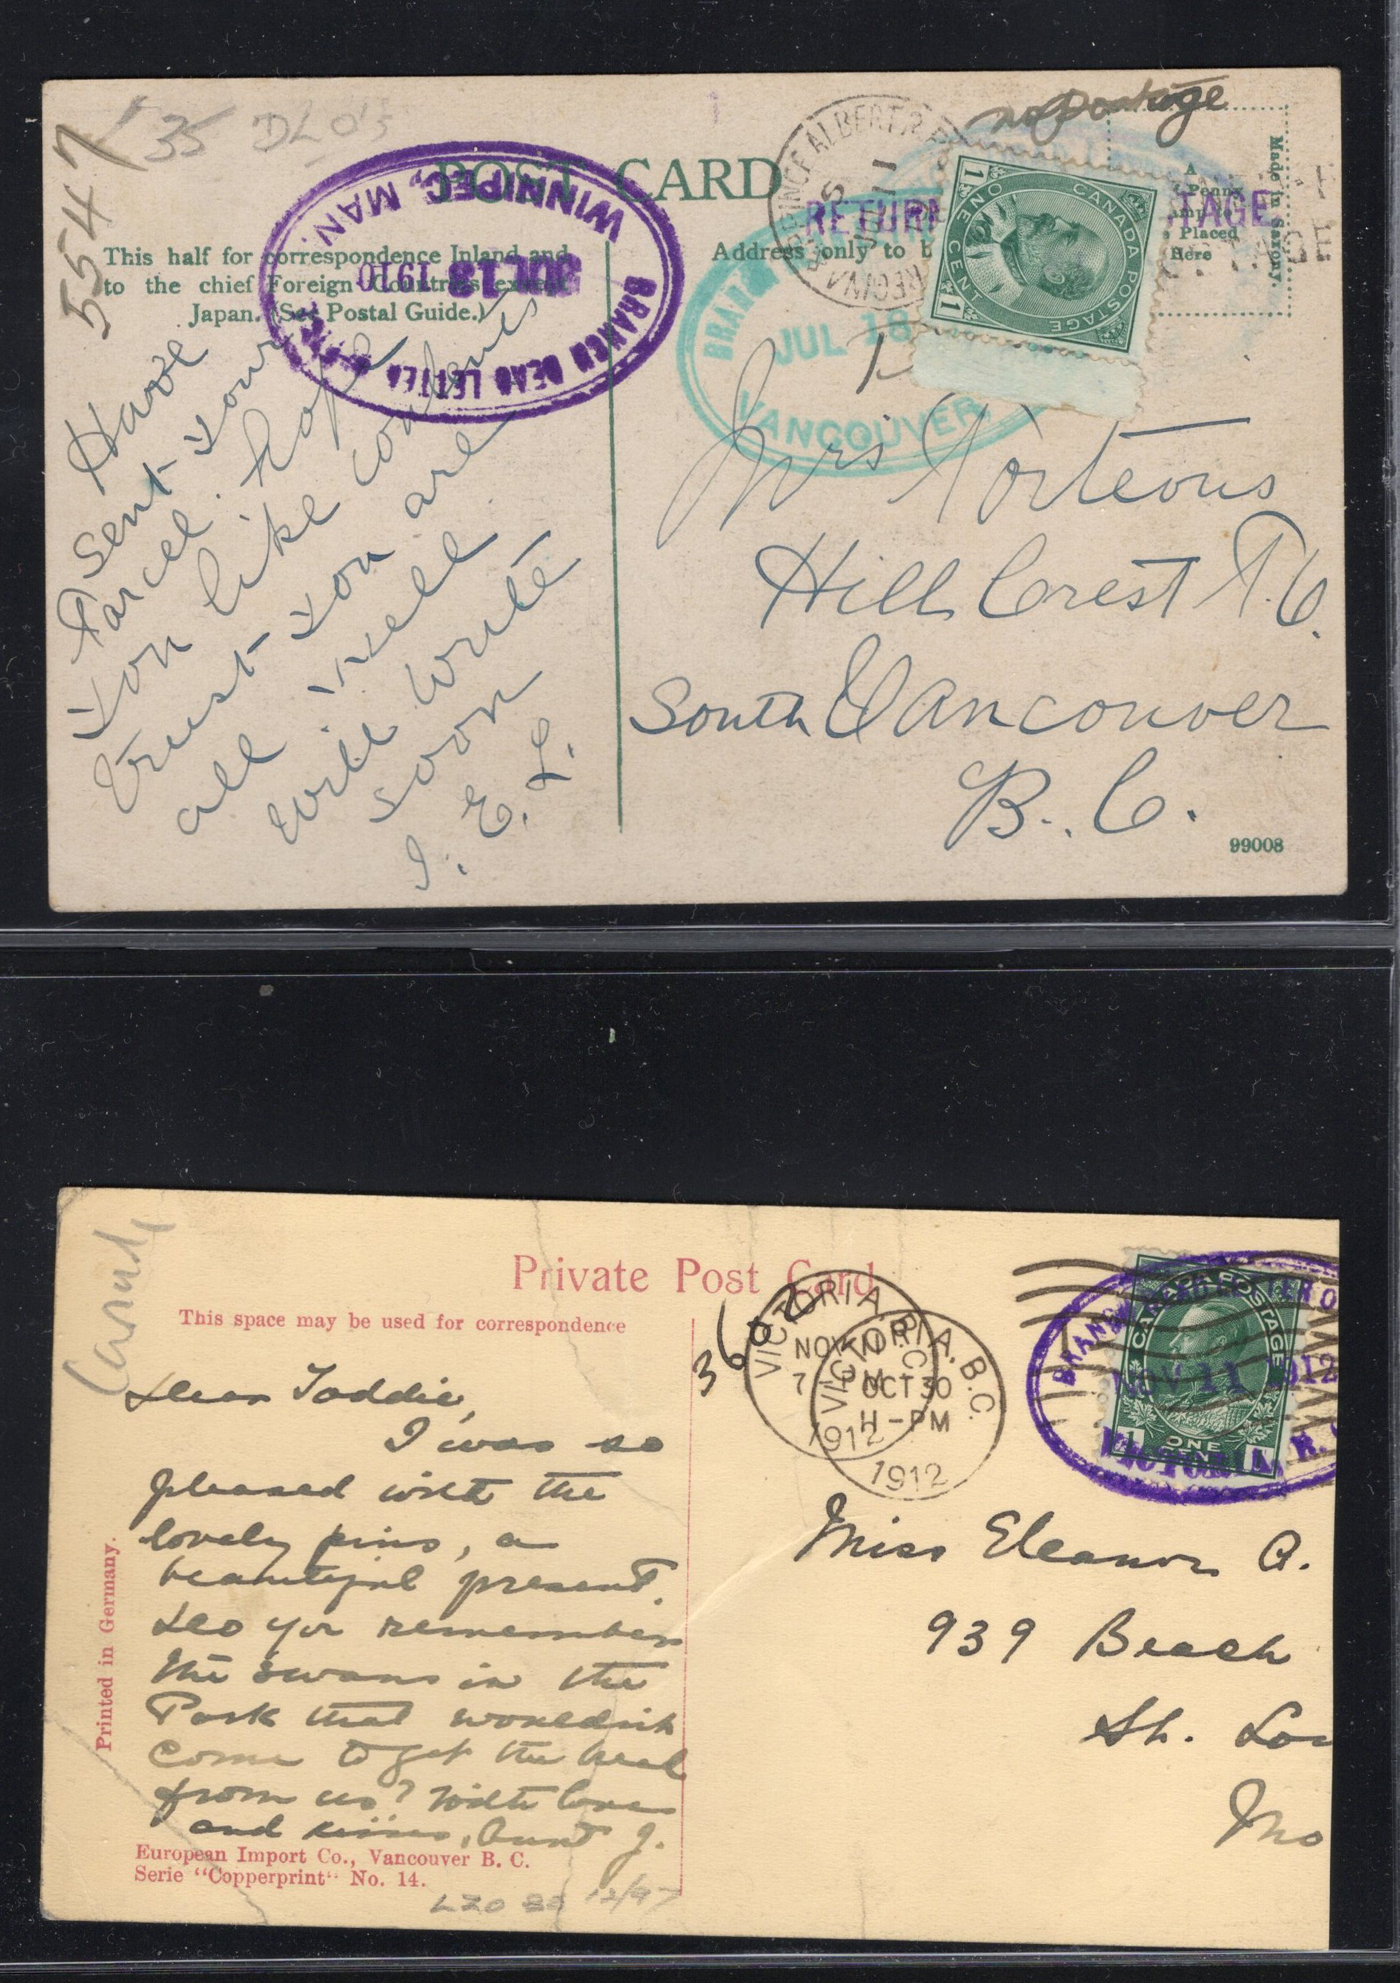 5547
35 DLO's
no postage
POST CARD
This half for correspondence Inland and
to the chief Foreign Countries except
Japan. (See Postal Guide.)
BRANCH DEAD LETTER OFFICE
JUL 13 1910
WINNIPEG, MAN.
Address only to b
PRINCE ALBERT & REGINA
RETURN TAGE
A
Penny
Placed
Here
Made in Saxony.
CANADA POSTAGE
ONE CENT
1 1
BRAN
JUL 18
VANCOUVER
Have
sent your
Parcel. hope
you like contents
trust you are
all well
will write
soon
I. E. L.
Mrs Porteous
Hill Crest P.O.
South Vancouver
B. C.
99008
Private Post Card
This space may be used for correspondence
360
VICTORIA, B.C.
NOV
7 PM
1912
VICTORIA, B.C.
OCT 30
H-PM
1912
CANADA POSTAGE
ONE CENT
1 1
BRANCH DEAD LETTER O
NOV 11 1912
VICTORIA, B.
Dear Toddie,
I was so
pleased with the
lovely pins, a
beautiful present.
Do you remember
the swans in the
Park that wouldn't
come to get the bread
from us? With love
and kisses, Aunt J.
Miss Eleanor A.
939 Beach
St. Lou
Mo
Printed in Germany.
European Import Co., Vancouver B. C.
Serie "Copperprint" No. 14.
12/97